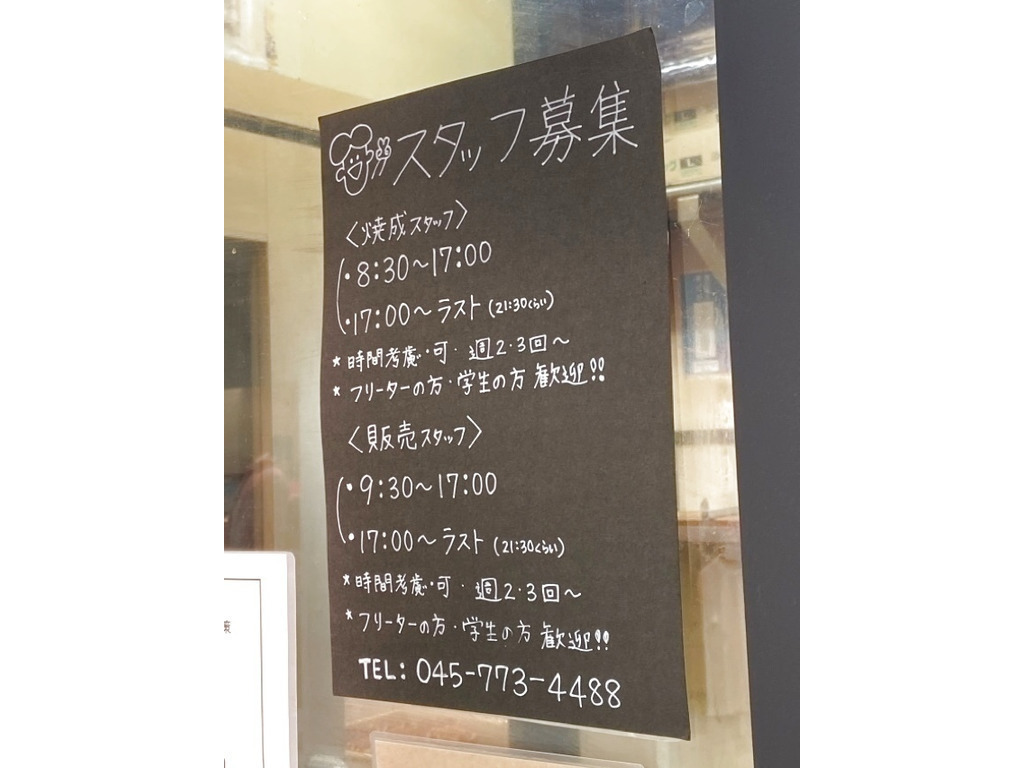 スタッフ募集
〈焼成スタッフ〉
・8:30～17:00
・17:00～ラスト(21:30くらい)
*時間考慮・可・週2・3回～
*フリーターの方・学生の方 歓迎!!
〈販売スタッフ〉
・9:30～17:00
・17:00～ラスト(21:30くらい)
*時間考慮・可・週2・3回～
*フリーターの方・学生の方 歓迎!!
TEL: 045-773-4488